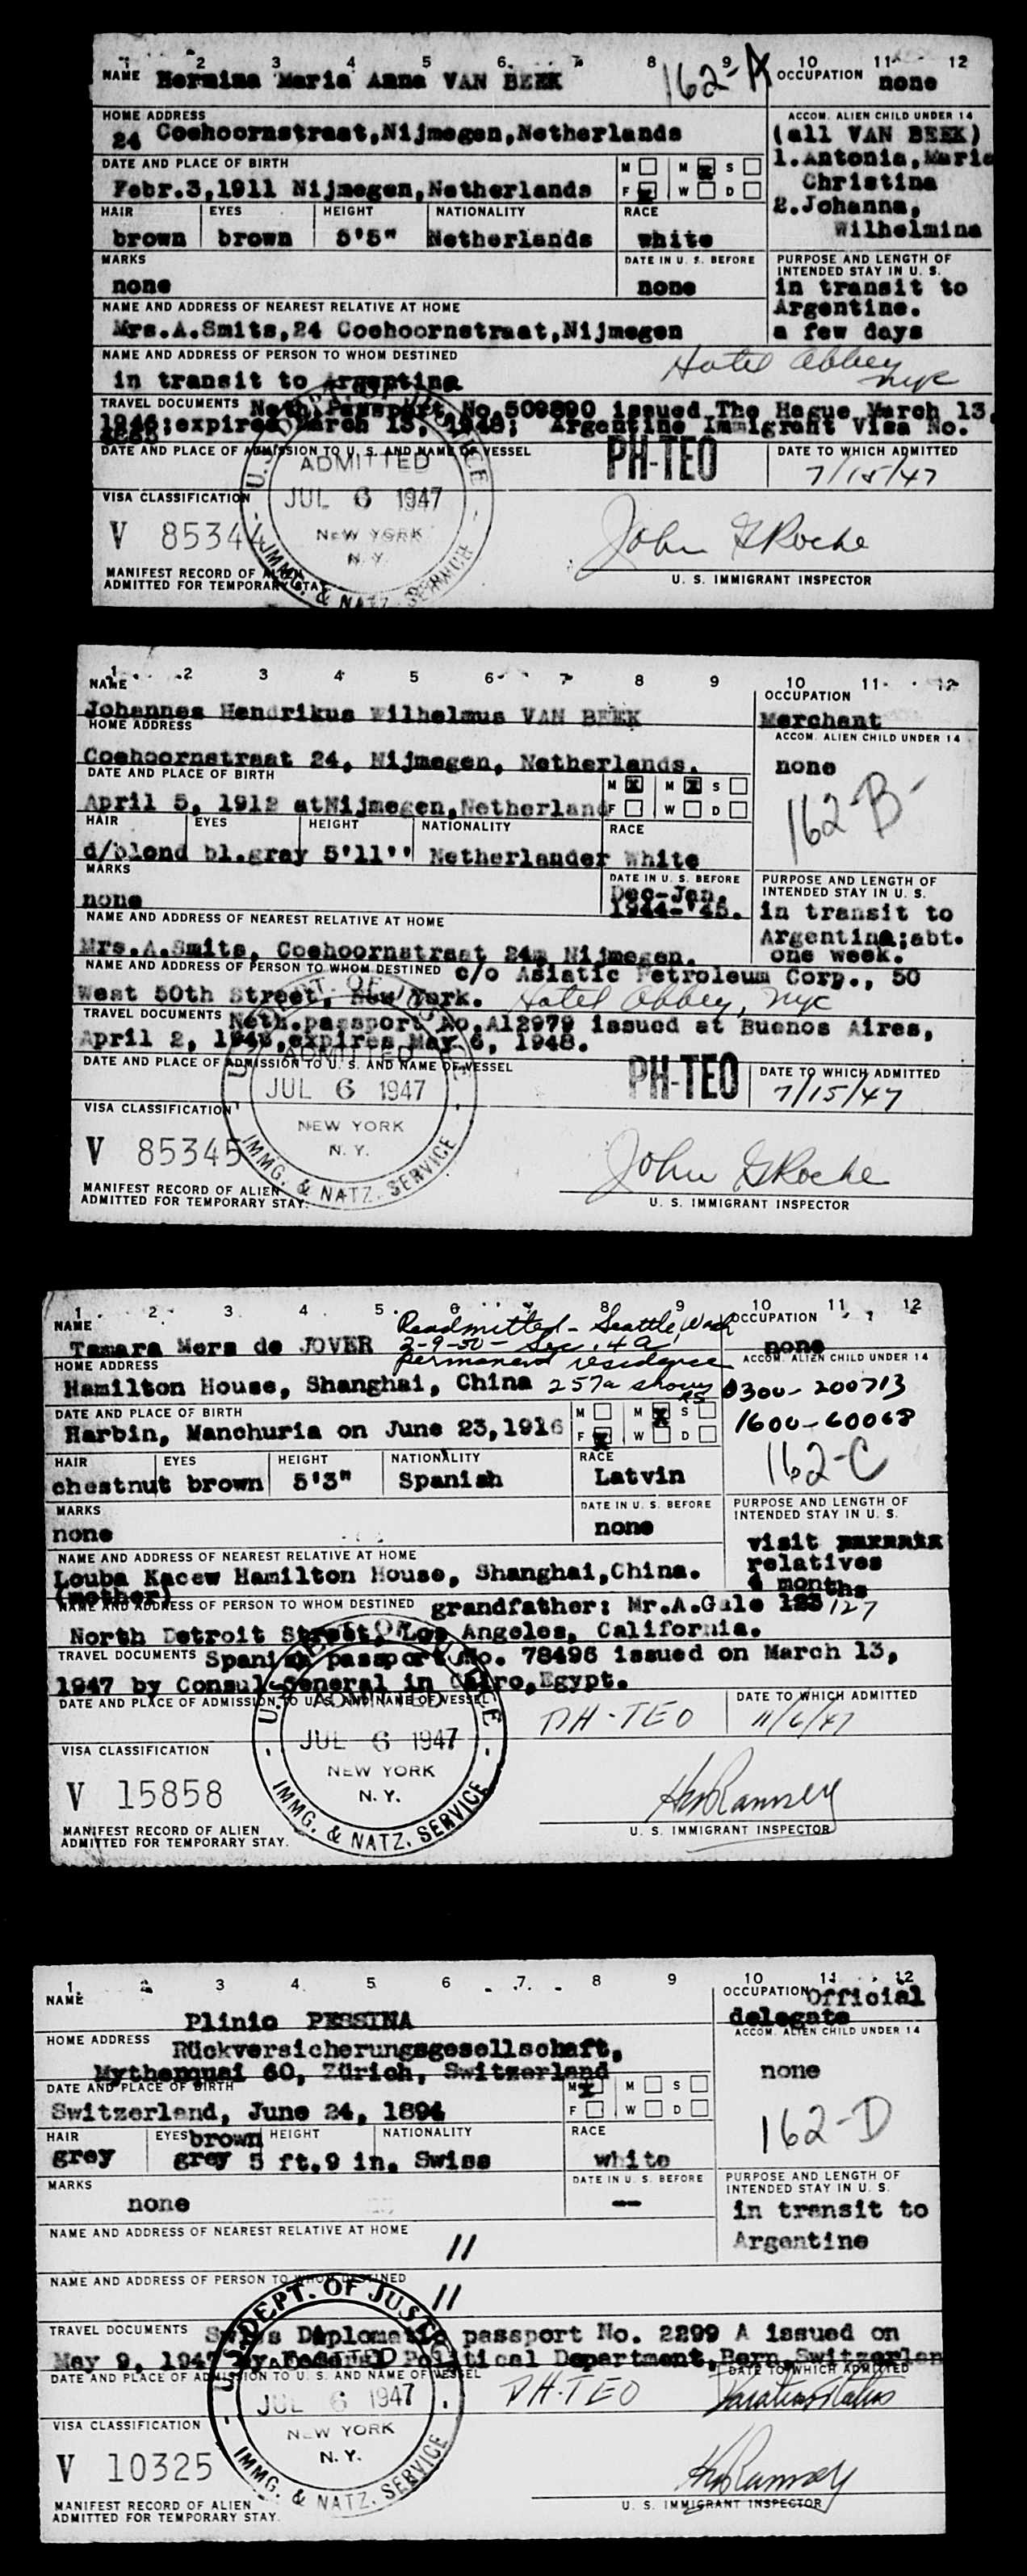 1 2 3 4 5 6 7 8 9 10 11 12
NAME Hermina Maria Anna VAN BEEK 162-A OCCUPATION none
HOME ADDRESS
24 Coehoornstraat,Nijmegen,Netherlands
ACCOM. ALIEN CHILD UNDER 14
(all VAN BEEK)
1.Antonia,Maria
Christina
2.Johanna,
Wilhelmina
DATE AND PLACE OF BIRTH M M S
Febr.3,1911 Nijmegen,Netherlands F W D
HAIR EYES HEIGHT NATIONALITY RACE
brown brown 5'5" Netherlands white
MARKS DATE IN U. S. BEFORE
none none
PURPOSE AND LENGTH OF
INTENDED STAY IN U. S.
in transit to
Argentine.
a few days
NAME AND ADDRESS OF NEAREST RELATIVE AT HOME
Mrs.A.Smits,24 Coehoornstraat,Nijmegen
NAME AND ADDRESS OF PERSON TO WHOM DESTINED
in transit to Argentina Hotel Abbey
nyc
TRAVEL DOCUMENTS Neth.Passport No.509890 issued The Hague March 13,
1946;expires March 13, 1948; Argentine Immigrant Visa No.
DATE AND PLACE OF ADMISSION TO U. S. AND NAME OF VESSEL PH-TEO DATE TO WHICH ADMITTED
7/15/47
ADMITTED
JUL 6 1947
NEW YORK
N. Y.
IMMG. & NATZ. SERVICE
VISA CLASSIFICATION
V 85344
John G Roche
MANIFEST RECORD OF ALIEN
ADMITTED FOR TEMPORARY STAY
U. S. IMMIGRANT INSPECTOR
1 2 3 4 5 6 7 8 9 10 11 12
NAME OCCUPATION
Johannes Hendrikus Wilhelmus VAN BEEK Merchant
HOME ADDRESS ACCOM. ALIEN CHILD UNDER 14
Coehoornstraat 24, Nijmegen, Netherlands. none
162-B
DATE AND PLACE OF BIRTH M X M X S
April 5, 1912 atNijmegen,Netherland F W D
HAIR EYES HEIGHT NATIONALITY RACE
d/blond bl.gray 5'11'' Netherlander White
MARKS DATE IN U. S. BEFORE
none Dec-Jan.
1944-'45.
PURPOSE AND LENGTH OF
INTENDED STAY IN U. S.
in transit to
Argentina;abt.
one week.
NAME AND ADDRESS OF NEAREST RELATIVE AT HOME
Mrs.A.Smits, Coehoornstraat 24, Nijmegen.
NAME AND ADDRESS OF PERSON TO WHOM DESTINED c/o Asiatic Petroleum Corp., 50
West 50th Street, New York. Hotel Abbey, nyc
TRAVEL DOCUMENTS Neth.passport No.A12979 issued at Buenos Aires,
April 2, 1946,expires May 6, 1948.
DATE AND PLACE OF ADMISSION TO U. S. AND NAME OF VESSEL PH-TEO DATE TO WHICH ADMITTED
7/15/47
ADMITTED
JUL 6 1947
NEW YORK
N. Y.
IMMG. & NATZ. SERVICE
VISA CLASSIFICATION
V 85345
John G Roche
MANIFEST RECORD OF ALIEN
ADMITTED FOR TEMPORARY STAY.
U. S. IMMIGRANT INSPECTOR
1 2 3 4 5 6 7 8 9 10 11 12
NAME OCCUPATION
Readmitted - Seattle, Wash
Tamara Mora de JOVER 2-9-50 - Sec. 4a none
permanent residence
HOME ADDRESS ACCOM. ALIEN CHILD UNDER 14
Hamilton House, Shanghai, China 257a shows 0300-200713
1600-60068
162-C
DATE AND PLACE OF BIRTH M M X S
Harbin, Manchuria on June 23,1916 F X W D
HAIR EYES HEIGHT NATIONALITY RACE
chestnut brown 5'3" Spanish Latvin
MARKS DATE IN U. S. BEFORE
none none
PURPOSE AND LENGTH OF
INTENDED STAY IN U. S.
visit
relatives
4 months
NAME AND ADDRESS OF NEAREST RELATIVE AT HOME
Louba Kacew Hamilton House, Shanghai,China.
(mother)
NAME AND ADDRESS OF PERSON TO WHOM DESTINED grandfather: Mr.A.Gale 123 127
North Detroit Street, Los Angeles, California.
TRAVEL DOCUMENTS Spanish passport No. 78496 issued on March 13,
1947 by Consul General in Cairo,Egypt.
DATE AND PLACE OF ADMISSION TO U. S. AND NAME OF VESSEL PH-TEO DATE TO WHICH ADMITTED
11/6/47
ADMITTED
JUL 6 1947
NEW YORK
N. Y.
IMMG. & NATZ. SERVICE
VISA CLASSIFICATION
V 15858
MANIFEST RECORD OF ALIEN
ADMITTED FOR TEMPORARY STAY.
U. S. IMMIGRANT INSPECTOR
1 2 3 4 5 6 7 8 9 10 11 12
NAME OCCUPATION Official
Plinio PESSINA delegate
HOME ADDRESS Rückversicherungsgesellschaft,
Mythenquai 60, Zürich, Switzerland
ACCOM. ALIEN CHILD UNDER 14
none
162-D
DATE AND PLACE OF BIRTH M X M S
Switzerland, June 24, 1894 F W D
HAIR EYES brown HEIGHT NATIONALITY RACE
grey grey 5 ft.9 in. Swiss white
MARKS DATE IN U. S. BEFORE
none --
PURPOSE AND LENGTH OF
INTENDED STAY IN U. S.
in transit to
Argentine
NAME AND ADDRESS OF NEAREST RELATIVE AT HOME
//
NAME AND ADDRESS OF PERSON TO WHOM DESTINED
//
TRAVEL DOCUMENTS Swiss Diplomatic passport No. 2299 A issued on
May 9, 1947 by Federal Political Department,Bern,Switzerlan
DATE AND PLACE OF ADMISSION TO U. S. AND NAME OF VESSEL PH-TEO DATE TO WHICH ADMITTED
Duration Status
U. S. DEPT. OF JUSTICE
ADMITTED
JUL 6 1947
NEW YORK
N. Y.
IMMG. & NATZ. SERVICE
VISA CLASSIFICATION
V 10325
MANIFEST RECORD OF ALIEN
ADMITTED FOR TEMPORARY STAY.
U. S. IMMIGRANT INSPECTOR